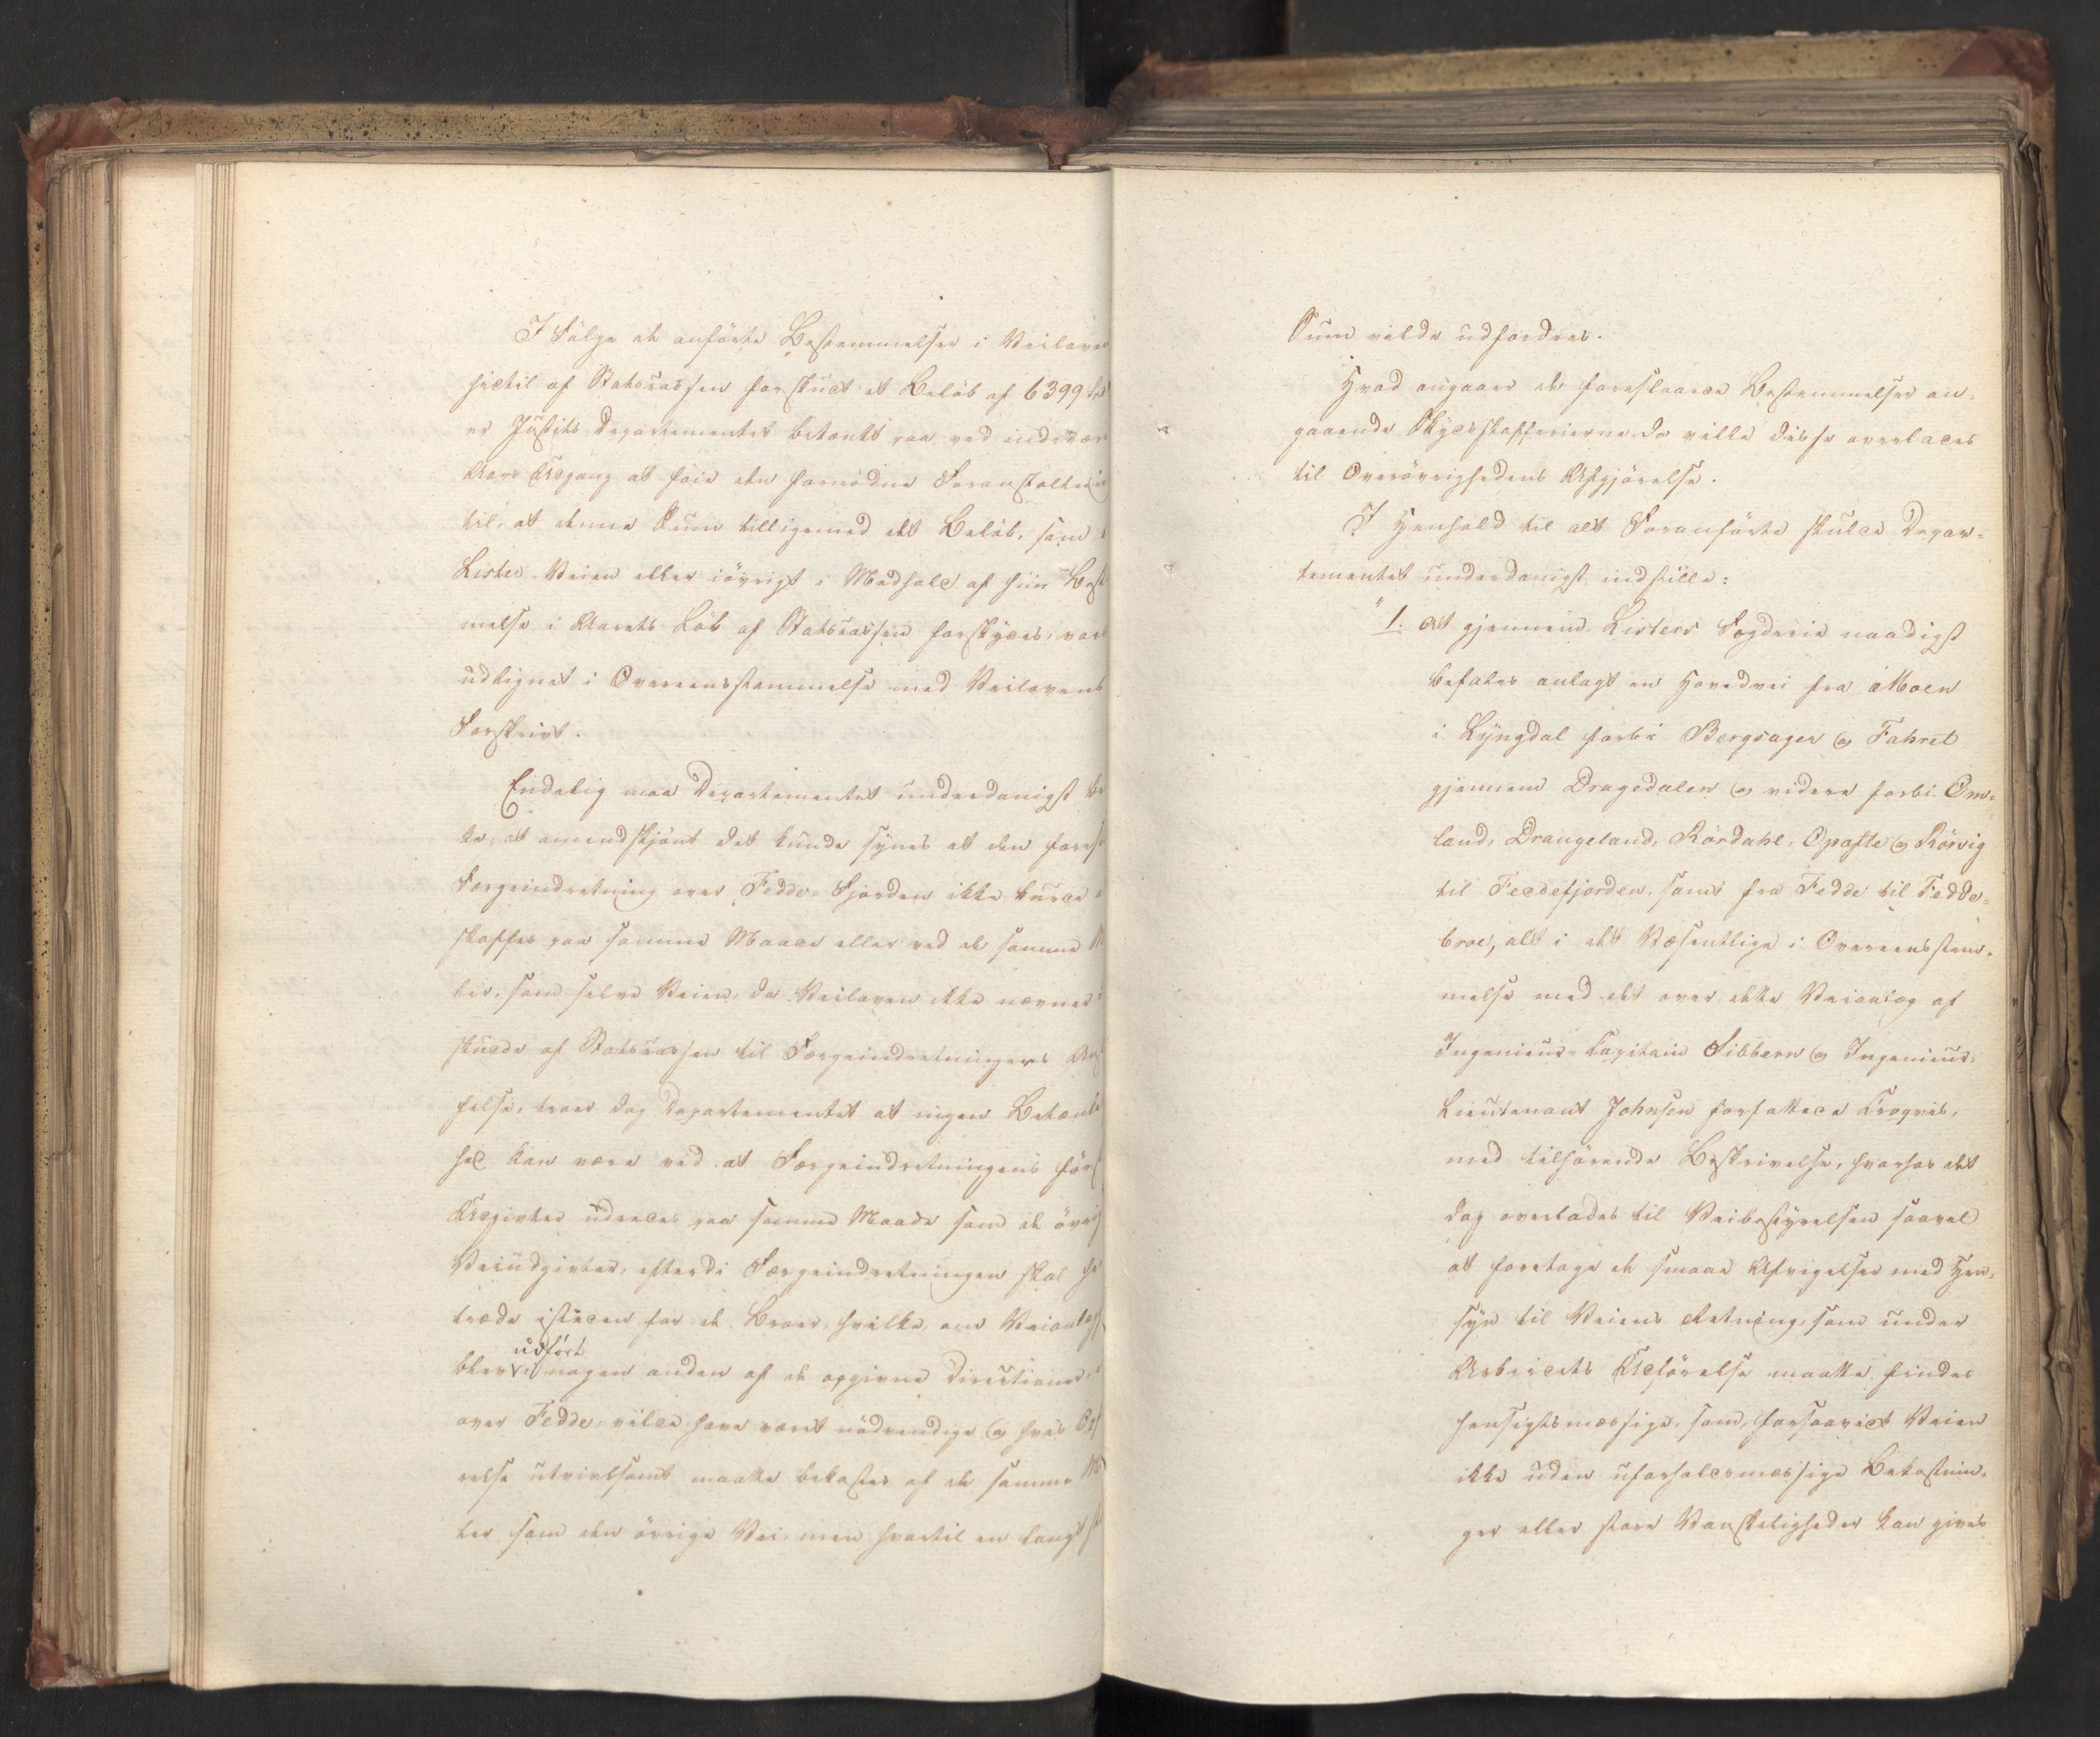 I Følge de anførte Bestemmelser i Veiloven
hidtil af Statscassen forskudt et Beløb af 6399
er Justits Departementet betænkt paa ved indevær
Aars Udgang at føie den fornødne Foranstaltning
til, at denne Sum tilligemed det Beløb, som
Lister-Veien eller iøvrigt i Medhold af hiin Best
melse i Aarets Løb af Statscassen forskydes, vor
udlignet i Overeensstemmelse med Veilovens
Forskrivt.
Endelig maa Departementet underdanigst be
ke, at omendskjønt det kunde synes at den fores
Færgeindretning over Fedde-Fjorden ikke burde
skaffes paa samme Maade eller ved de samme
ler, som selve Veien, da Veiloven ikke nævner
skudde af Statscassen til Færgeindretningers An
felse, troer dog Departementet at ingen Betænke
hed kan være ved at Færgeindretningens før
Udgivter udredes paa samme Maade som de øvri
Veiudgivter, efterdi Færgeindretningen skal
træde isteden for de Broer, hvilke, om Veianlæg
udført
blev i nogen anden af de opgivne Directioner,
over Fedde, vilde have været nødvendige og hvis Op
relse utvivlsomt maatte bekostes af de samme
ler som den øvrige Vei, men hvortil en langt
Sum vilde udfordres.
Hvad angaaer de foreslaaede Bestemmelser an-
gaaende Skydsskafferierne da ville disse overlades
til Overøvrighedens Afgjørelse.
I Henhold til alt Foranførte skulde Depar-
tementet underdanigst indstille:
"1. At gjennem Listers Fogderie naadigst
befales anlagt en Hovedvei fra Moen
i Lyngdal forbi Bergsager og Fahret
gjennem Dragedalen og videre forbi Om-
land, Drangeland, Rørdahl, Opofte og Rørvig
til Feddefjorden, samt fra Fedde til Fedde-
broe, alt i det Væsentlige i Overeensstem-
melse med det over dette Veianlæg af
Ingenieur-Capitain Sibbern og Ingenieur-
Lieutenant Johnsen forfattede Croquis,
med tilhørende Beskrivelse, hvorhos det
dog overlades til Veibestyrelsen saavel
at foretage de smaae Afvigelser med Hen-
syn til Veiens Retning, som under
Arbeidets Udførelse maatte findes
hensigtsmæssige, som, forsaavidt Veien
ikke uden uforholdsmæssige Bekostnin-
ger eller store Vanskeligheder kan gives